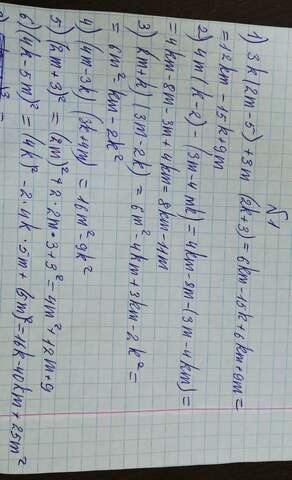 №1
1) 3k(2m-5)+3m(2k+3)=6km-15k+6km+9m=
=12km-15k+9m
2) 4m(k-2)-(3m-4mk)=4km-8m-(3m-4km)=
=4km-8m-3m+4km=8km-11m
3) (2m+k)(3m-2k)=6m²-4km+3km-2k²=
=6m²-km-2k²
4) (4m-3k)(3k+4m)=16m²-9k²
5) (2m+3)²=(2m)²+2·2m·3+3²=4m²+12m+9
6) (4k-5m)²=(4k)²-2·4k·5m+(5m)²=16k-40km+25m²